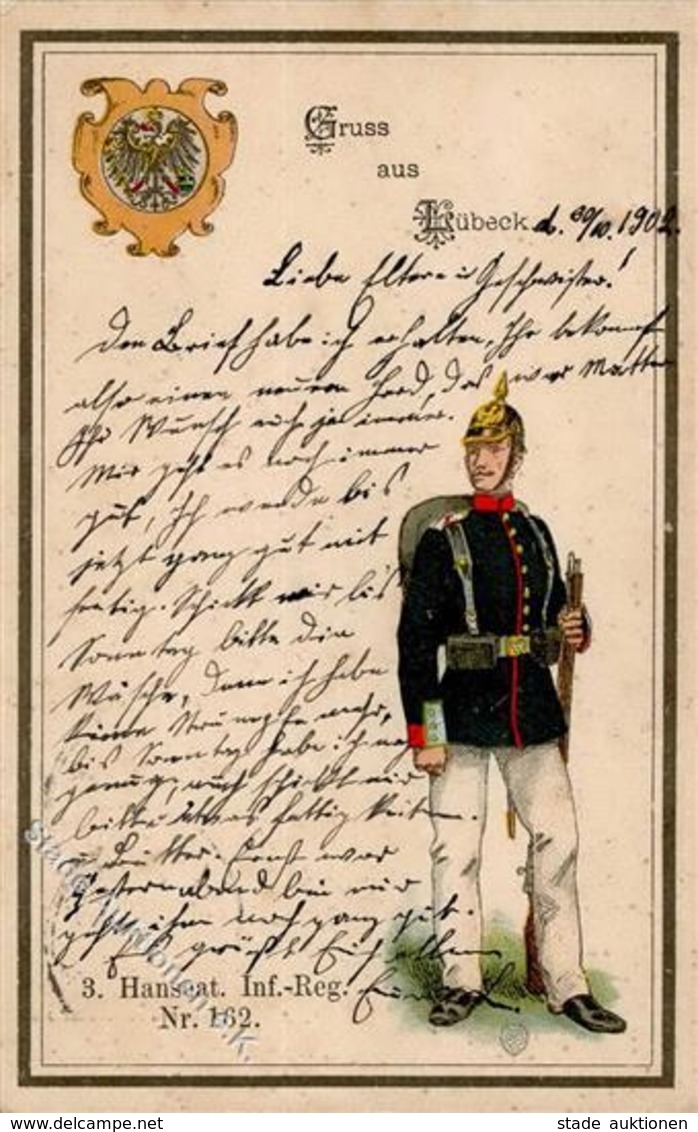 Gruss
aus
Lübeck. d. 30/10. 1902.
Liebe Eltern u Geschwister!
Den Brief habe ich erhalten, Ihr bekommt
also einen neuen Herd, das war Mutter
Ihr Wunsch auch ja immer.
Mir geht es noch immer
gut, Ich werde bis
jetzt ganz gut mit
fertig. Schickt mir bis
Sonntag bitte die
Wäsche, denn ich habe
keine Strümpfe mehr,
bis Sonntag habe ich noch
genug, auch schickt mir
bitte etwas Fettigkeiten.
u Butter. Ernst war
Gesternabend bei mir
geht ihm noch ganz gut.
Es grüßt Euch allen
3. Hanseat. Inf.-Reg. Euer
Nr. 162.
stade auktionen
www.delcampe.net